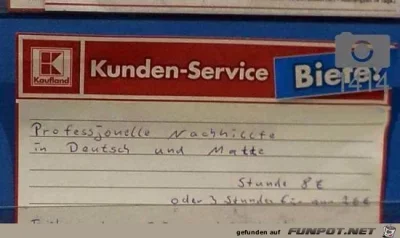 Kaufland
Kunden-Service
Biete:
1414
Professjonelle Nachhillfe
in Deutsch und Matte
Stunde 8€
oder 3 Stunden für nur 26€
gefunden auf FUNPOT.NET